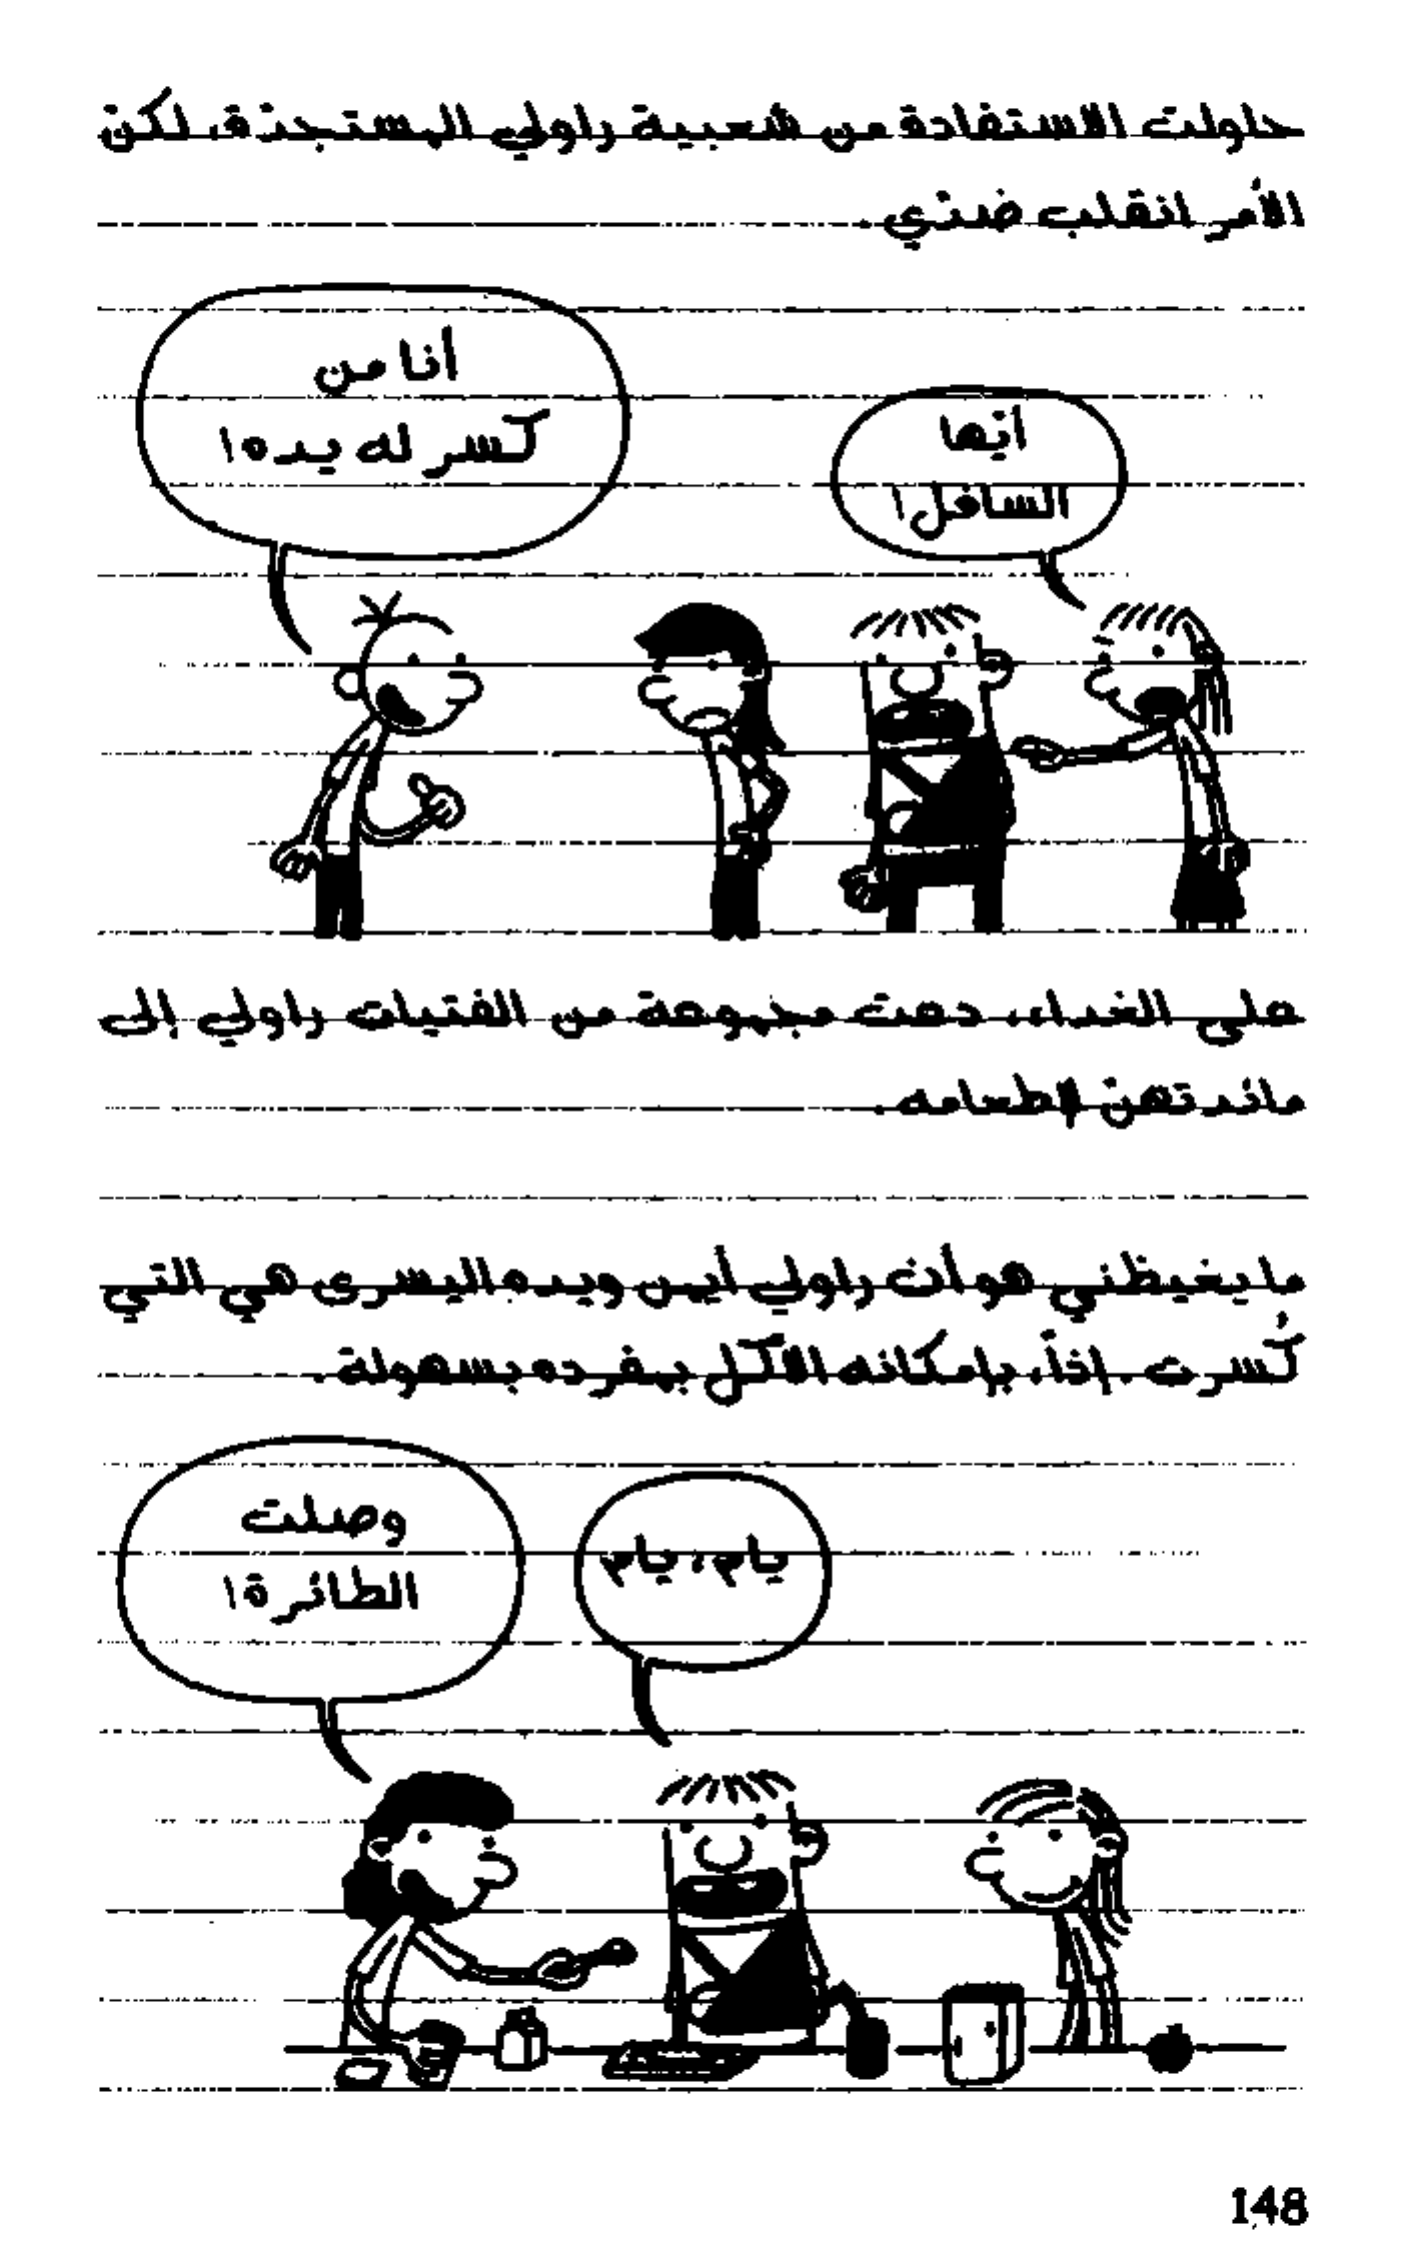 حاولت الاستفادة من شعبية راولي المستجدّة، لكنّ
الأمر انقلب ضدّي.
أنا من
كسر له يده!
أيّها
السافل!
على الغداء، دعت مجموعة من الفتيات راولي إلى
مائدتهنّ لإطعامه.
ما يغيظني هو أن راولي أيمن ويده اليسرى هي التي
كُسرت. إذاً، بإمكانه الأكل بمفرده بسهولة.
وصلت
الطائرة!
يام، يام
148